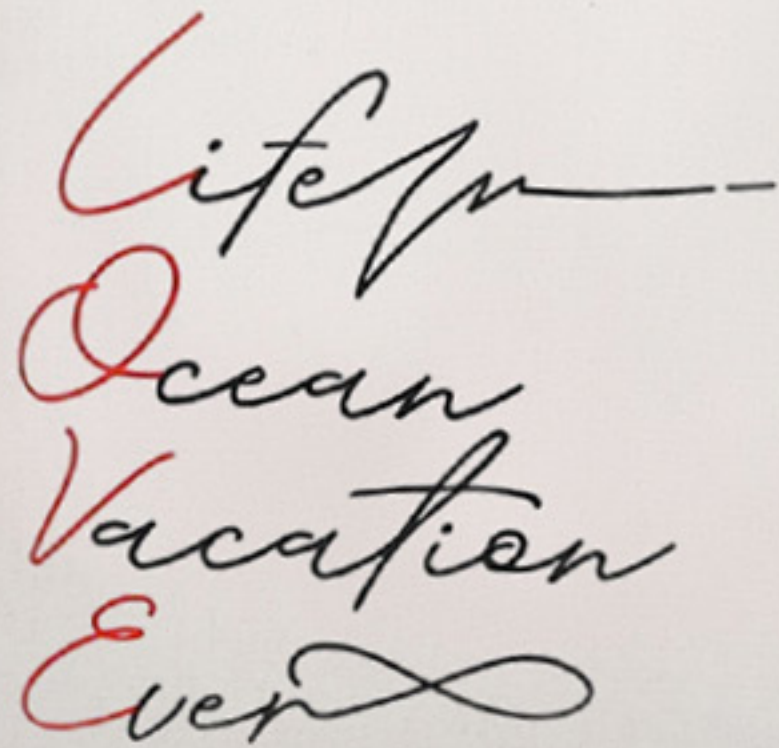 Life
Ocean
Vacation
Ever